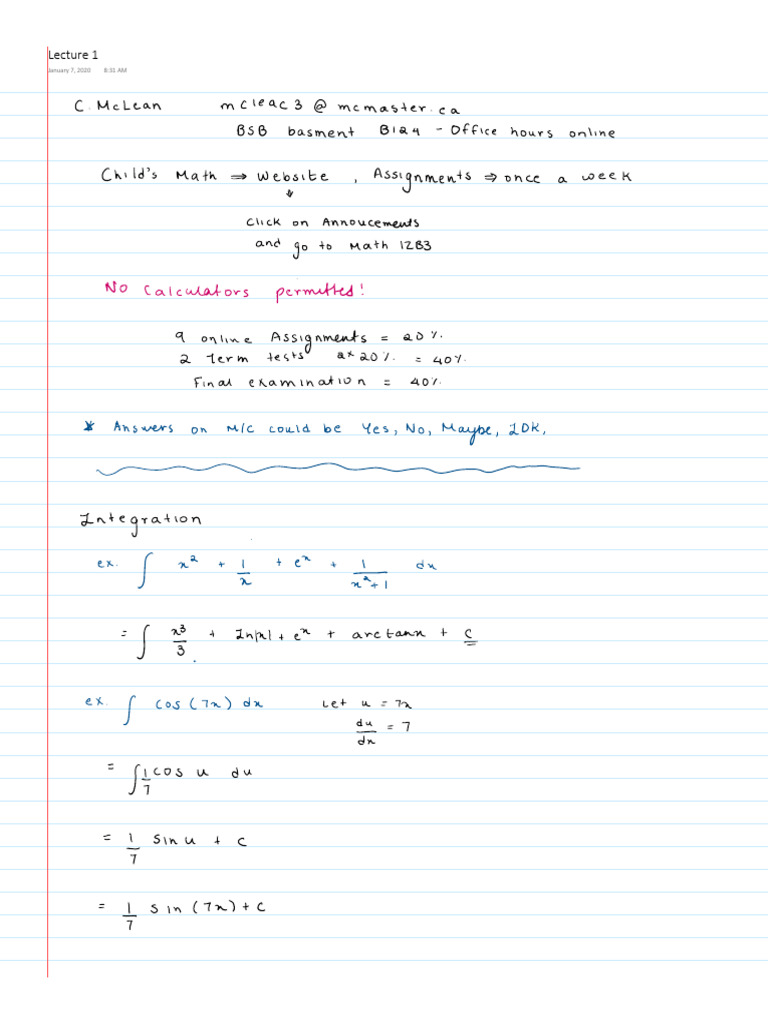 Lecture 1
January 7, 2020 8:31 AM
C. McLean mcleac3 @ mcmaster.ca
BSB basment B124 - Office hours online
Child's Math ⇒ Website , Assignments ⇒ once a week
↓
Click on Annoucements
and go to Math 1ZB3
No calculators permitted!
9 online Assignments = 20%.
2 Term tests 2x20%. = 40%.
Final examination = 40%.
* Answers on M/C could be Yes, No, Maybe, IDK,
Integration
ex. ∫ x² + 1/x + eˣ + 1/(x²+1) dx
= ∫ x³/3 + ln|x| + eˣ + arctanx + c
ex. ∫ cos(7x) dx Let u = 7x
du/dx = 7
= ∫ 1/7 cos u du
= 1/7 sin u + c
= 1/7 sin (7x) + c